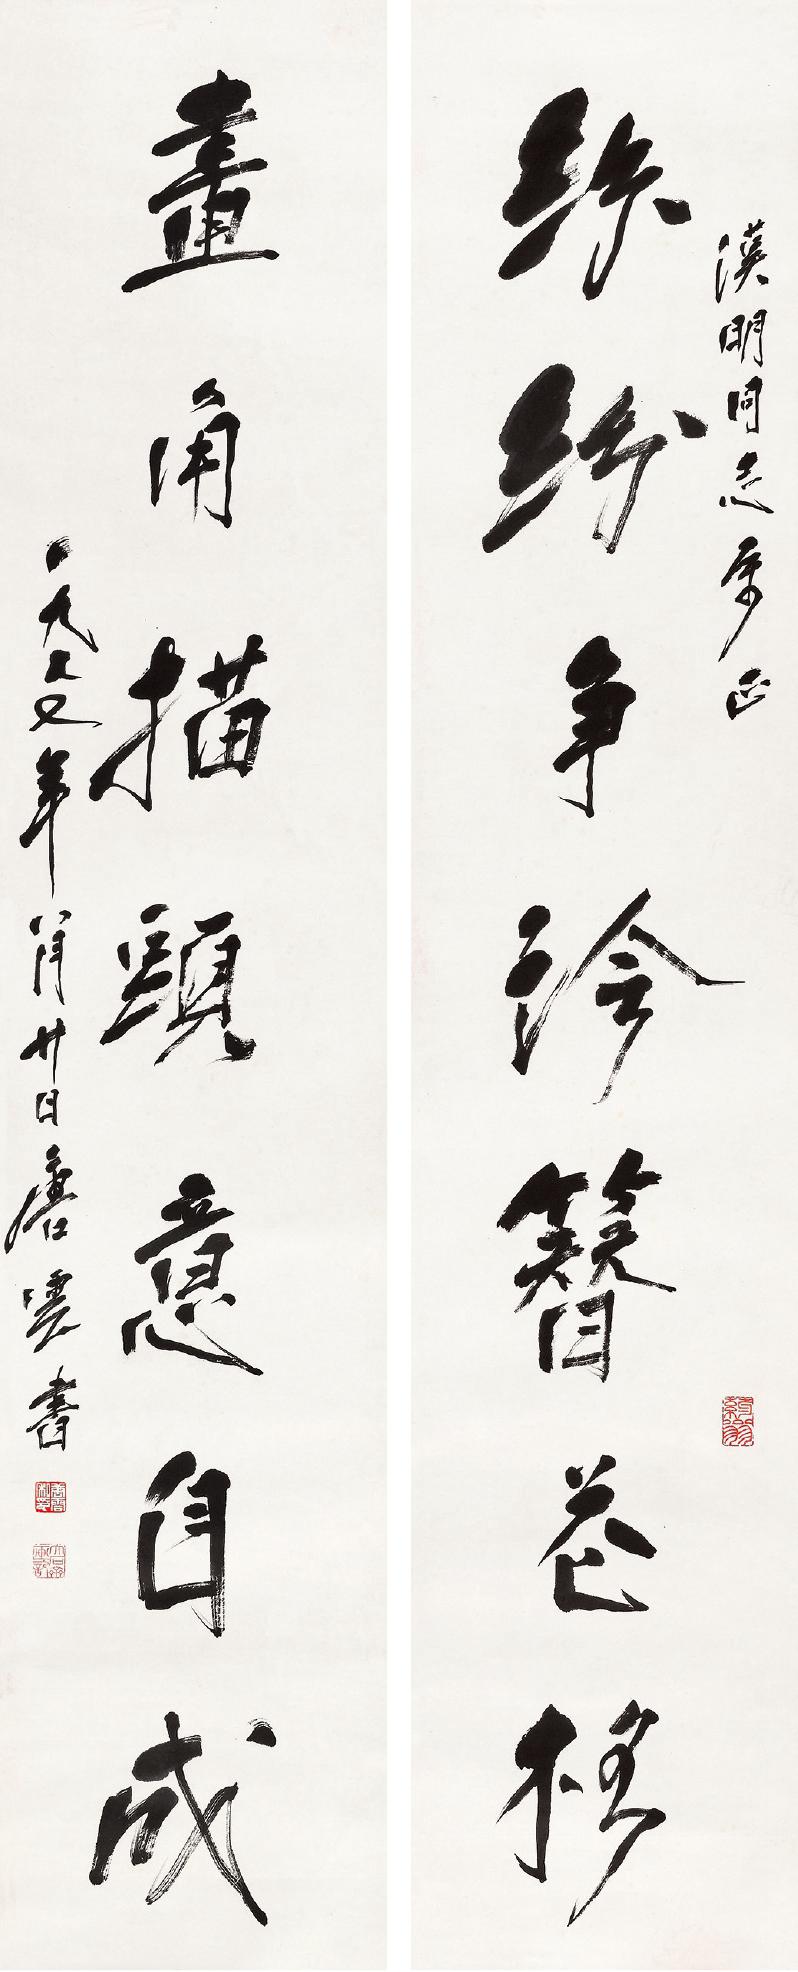 漢明同志属正
紛紛争矜簪花格
畫角描頭意自成
一九七七年八月廿日唐雲書